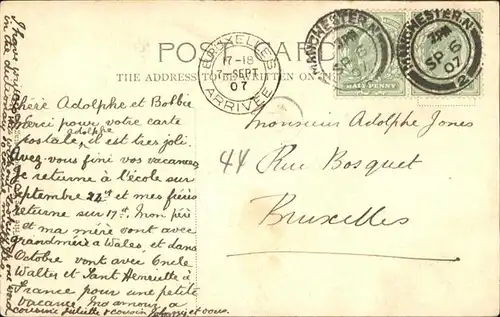 POST CARD
THE ADDRESS TO BE WRITTEN ON THIS
BRUXELLES
17-18
7 SEPT
07
ARRIVÉE
MANCHESTER.N
7 PM
SP 6
07
HALF PENNY
MANCHESTER.N
7 PM
SP 6
07
2
Chère Adolphe et Bobbie
Merci pour votre carte
Adolphe
postale, il est tres joli.
Avez-vous fini vos vacances
Je returne à l'école sur
Septembre 24st et mes frères
returne sur 17st. Mon père
et ma mère vont avec
grandmère a Wales, et dans
Octobre vont avec Oncle
Walter et Tant Henriette à
France pour une petite
vacance, Mes amour a
cousine Juliette & cousin et vous.
I have
in the
Monsieur Adolphe Jones
44 Rue Bosquet
Bruxelles